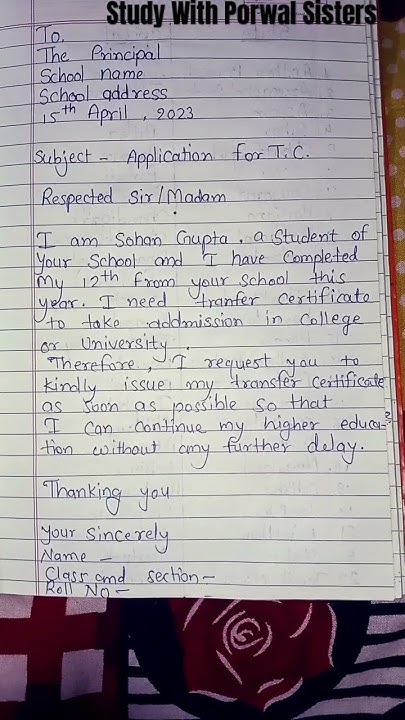 Study With Porwal Sisters
To,
The Principal
School name
School address
15th April, 2023
Subject - Application for T.C.
Respected Sir/Madam
I am Sohan Gupta, a Student of
your School and I have Completed
My 12th from your school this
year. I need tranfer certificate
to take addmission in College
or University.
Therefore, I request you to
kindly issue my transfer certificate
as soon as possible so that
I can continue my higher educa-
tion without any further delay.
Thanking you
Your Sincerely
Name -
Class and section -
Roll No -